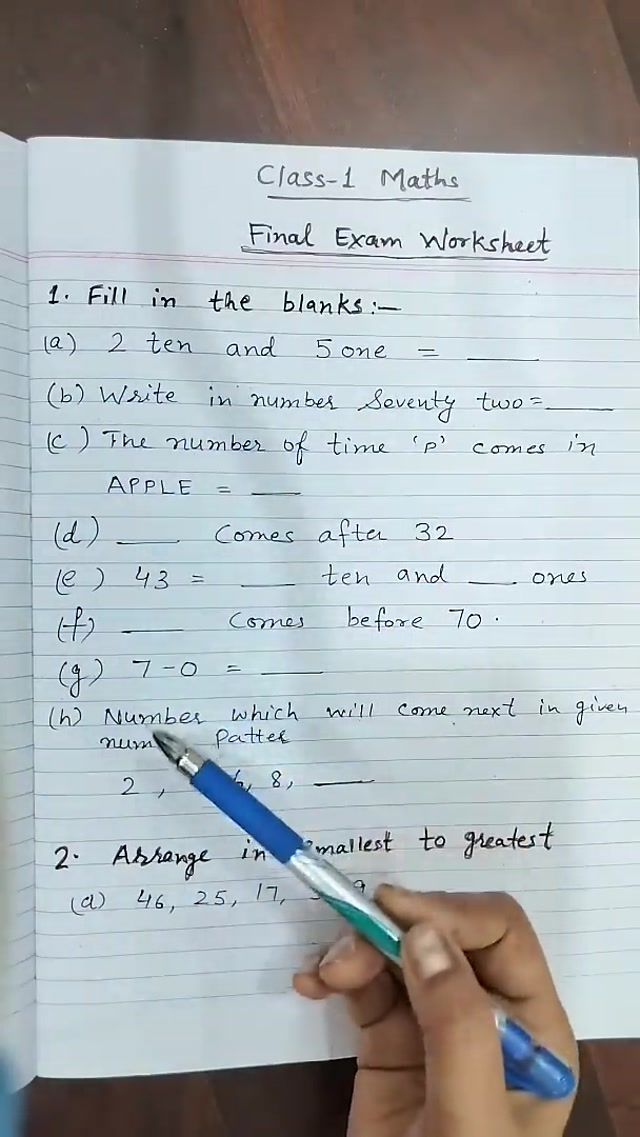 Class-1 Maths
Final Exam Worksheet
1. Fill in the blanks:-
(a) 2 ten and 5 one = ____
(b) Write in number Seventy two = ____
(c) The number of time 'P' comes in
APPLE = ____
(d) ____ Comes after 32
(e) 43 = ____ ten and ____ ones
(f) ____ Comes before 70.
(g) 7-0 = ____
(h) Number which will come next in given
Patter
2, 8, ____
2. Arrange in to greatest
(a) 46, 25, 17,